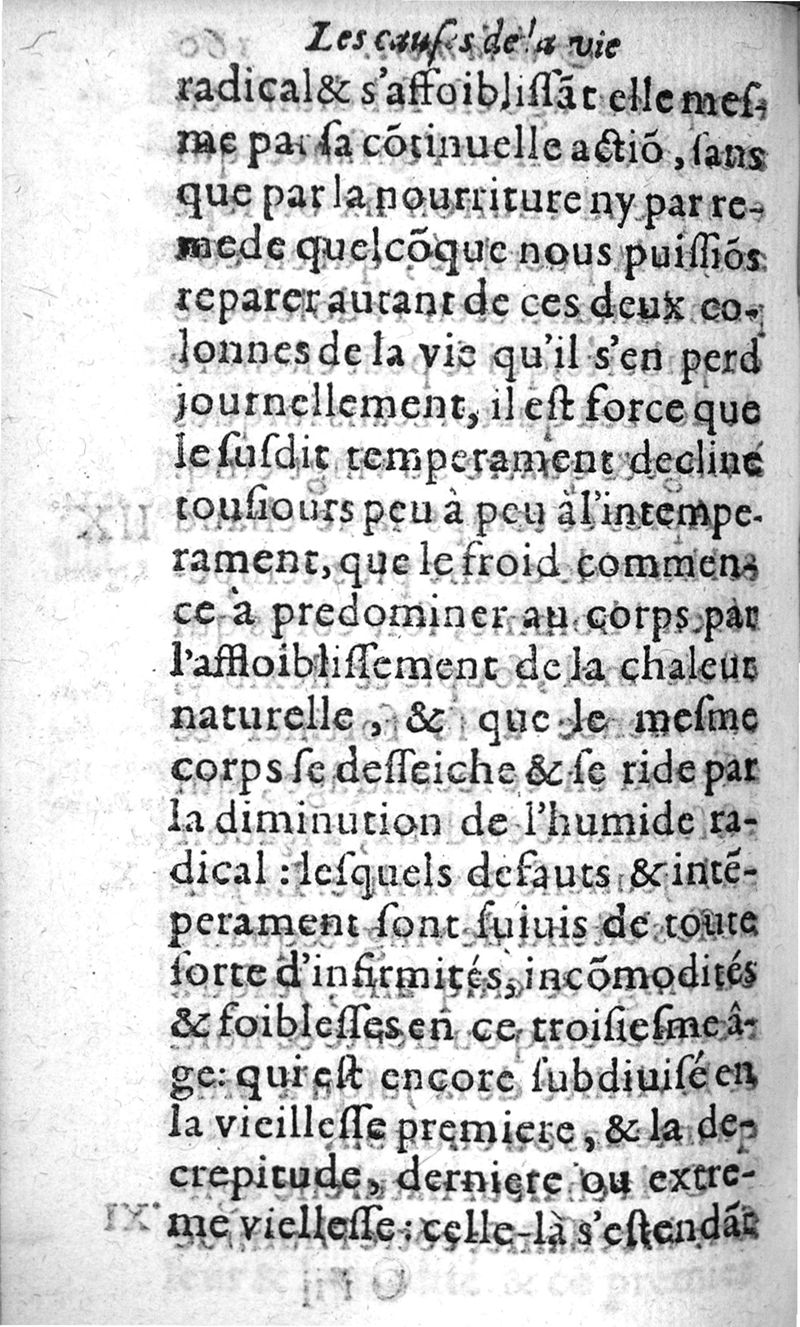 Les cauſes de la vie
radical & s'affoibliſſãt elle meſ-
me par ſa cõtinuelle actiõ, ſans
que par la nourriture ny par re-
mede quelcõque nous puiſſiõs
reparer autant de ces deux co-
lonnes de la vie qu'il s'en perd
journellement, il eſt force que
le ſuſdit temperament decline
touſiours peu à peu à l'intempe-
rament, que le froid commen-
ce à predominer au corps par
l'affloibliſſement de la chaleur
naturelle, & que le meſme
corps ſe deſſeiche & ſe ride par
la diminution de l'humide ra-
dical : leſquels defauts & intẽ-
perament ſont ſuiuis de toute
ſorte d'infirmités, incõmodités
& foibleſſes en ce troiſieſme â-
ge: qui eſt encore ſubdiuiſé en
la vieilleſſe premiere, & la de-
crepitude, derniere ou extre-
me vielleſſe : celle-là s'eſtendãt